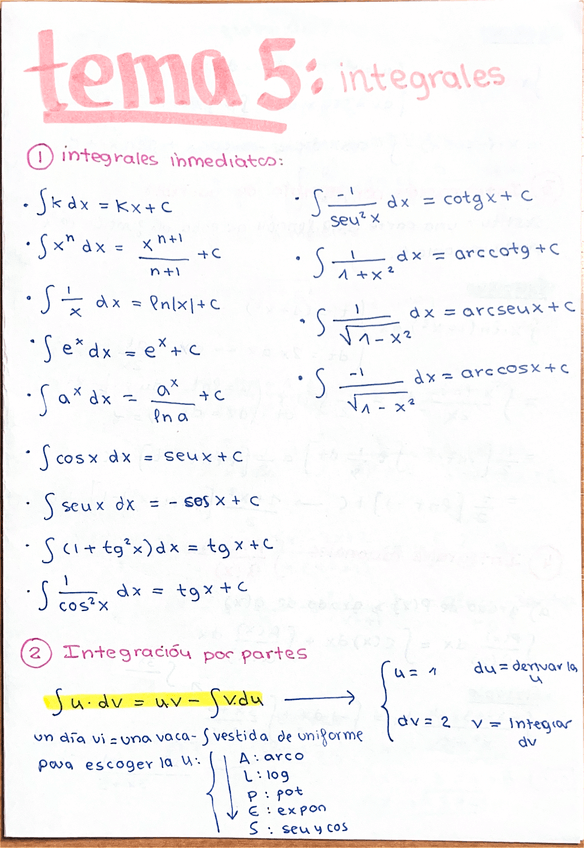 tema 5: integrales
① integrales inmediatas:
· ∫k dx = Kx+C
· ∫xⁿ dx = xⁿ⁺¹/n+1 +C
· ∫ 1/x dx = ln|x|+C
· ∫eˣ dx = eˣ+C
· ∫aˣ dx = aˣ/ln a +C
· ∫cosx dx = senx+C
· ∫senx dx = -cosx+C
· ∫(1+tg²x)dx = tgx+C
· ∫ 1/cos²x dx = tgx+C
· ∫ -1/sen²x dx = cotgx+C
· ∫ 1/1+x² dx = arccotg+C
· ∫ 1/√1-x² dx = arcsenx+C
· ∫ -1/√1-x² dx = arccosx+C
② Integración por partes
∫u·dv = u.v - ∫v.du ⟶ { u = 1 du = derivar la u
dv = 2 v = Integrar dv
un día vi = una vaca - ∫vestida de uniforme
para escoger la u: { ↓ A: arco
L: log
P: pot
E: expon
S: sen y cos